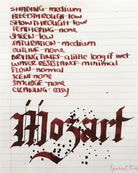 SHADING: medium
BLEEDTHROUGH: low
SHOWTHROUGH: low
FEATHERING: none
SHEEN: low
SATURATION: medium
OUTLINE: none
DRYING TIMES: a little long if wet
WATER RESISTANCE: minimal
FLOW: normal
SCENT: none
SMUDGE: none
CLEANING: easy
Mozart